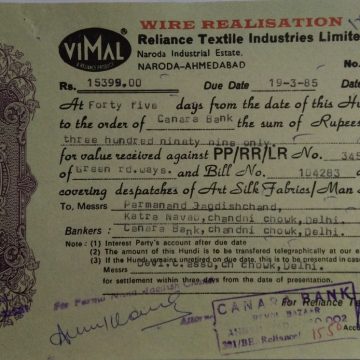 WIRE REALISATION
VIMAL
A RELIANCE PRODUCT
Reliance Textile Industries Limite
Naroda Industrial Estate,
NARODA-AHMEDABAD
No.
Rs. 15399.00 Due Date 19-3-85 Date
At Forty five days from the date of this H
to the order of Canara Bank the sum of Rupees
three hundred ninety nine only.
for value received against PP/RR/LR No. 345
of Green rd.ways. and Bill No. 104283 d
covering despatches of Art Silk Fabrics/Man
To Messrs Parmanand Jagdishchand,
Katra Navab, chandni chowk, Delhi.
Bankers : Canara Bank, chandni chowk, Delhi.
Note : (1) Interest Party's account after due date
(2) The amount of this Hundi is to be transferred telegraphically at our
(3) If the Hundi remains unretired on due date, this is to be presented in case
Messrs Devi.t.asso, Ch Chowk, Delhi.
for settlement within three days from the date of
for Reliance T
CANARA BANK